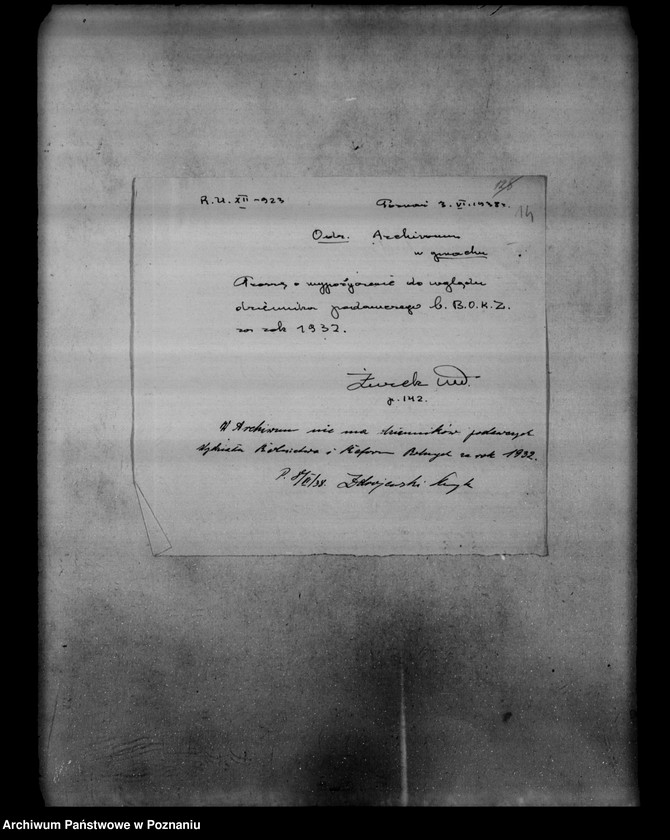 128
R.U. XII-923 Poznań 3.VI.1938r. 14
Odz. Archiwum
w gmachu
Proszę o wypożyczenie do wglądu
dziennika podawczego b. B.O.K.Z.
za rok 1932.
Żurek
p. 142.
W Archiwum nie ma dzienników podawczych
Wydziału Rolnictwa i Reform Rolnych za rok 1932.
P.
Archiwum Państwowe w Poznaniu